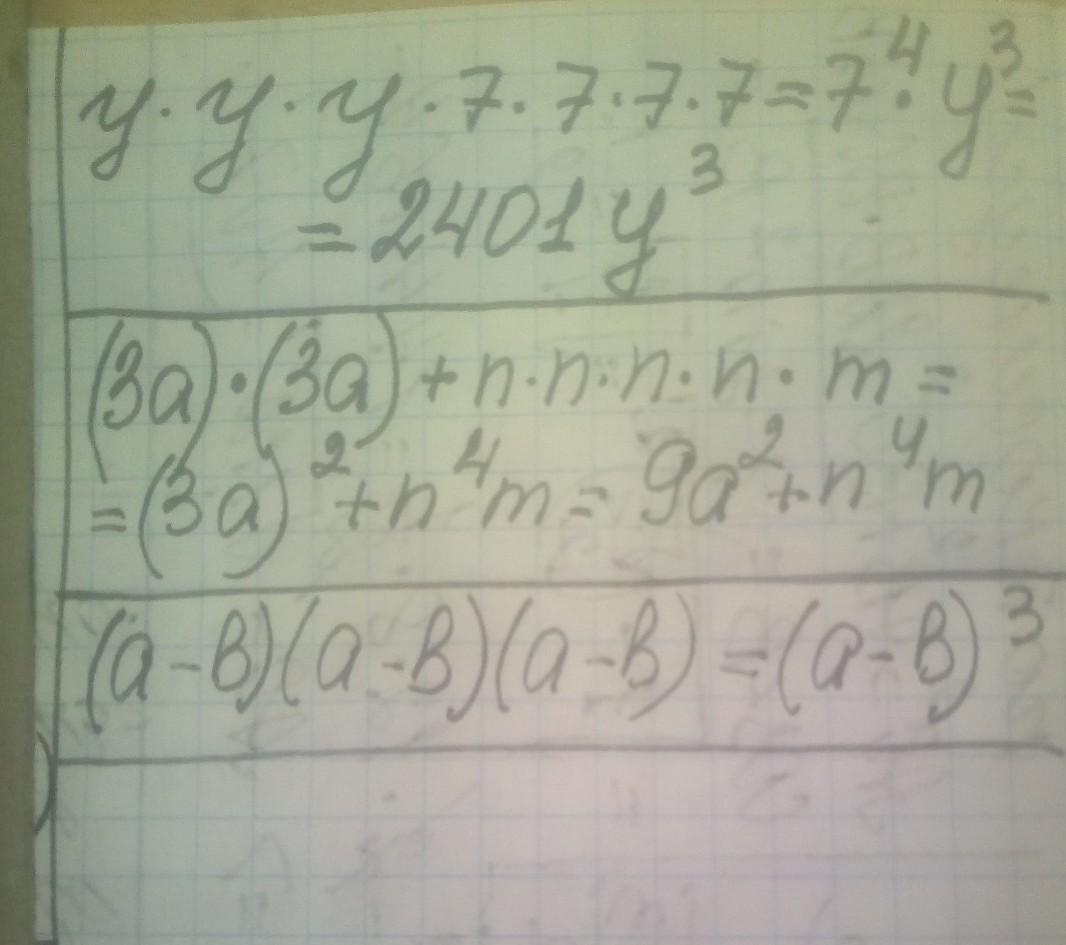 y · y · y · 7 · 7 · 7 · 7 = 7⁴ · y³ =
= 2401 y³
(3a) · (3a) + n · n · n · n · m =
= (3a)² + n⁴m = 9a² + n⁴m
(a - в)(a - в)(a - в) = (a - в)³